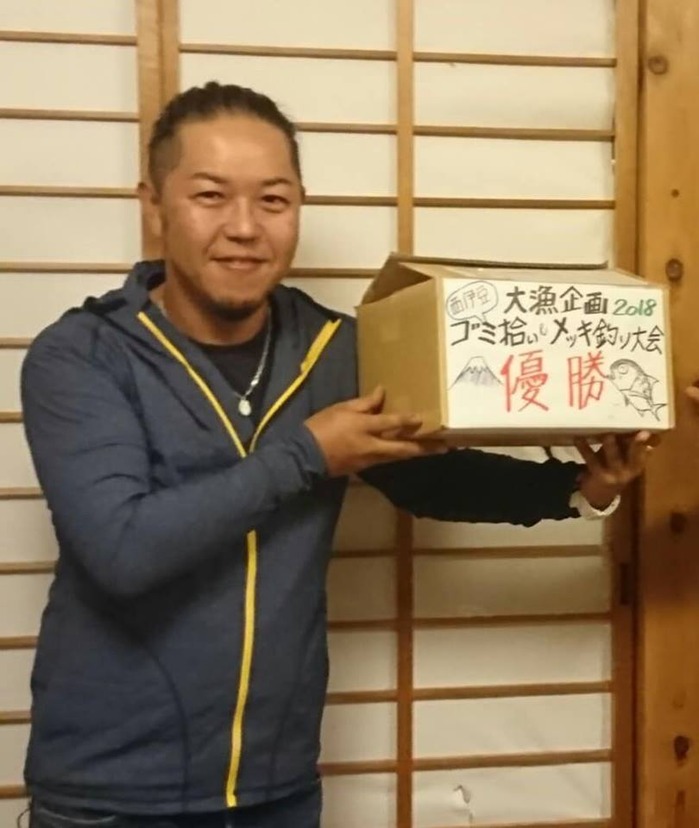 西伊豆
大漁企画 2018
ゴミ拾い&メッキ釣り大会
優勝